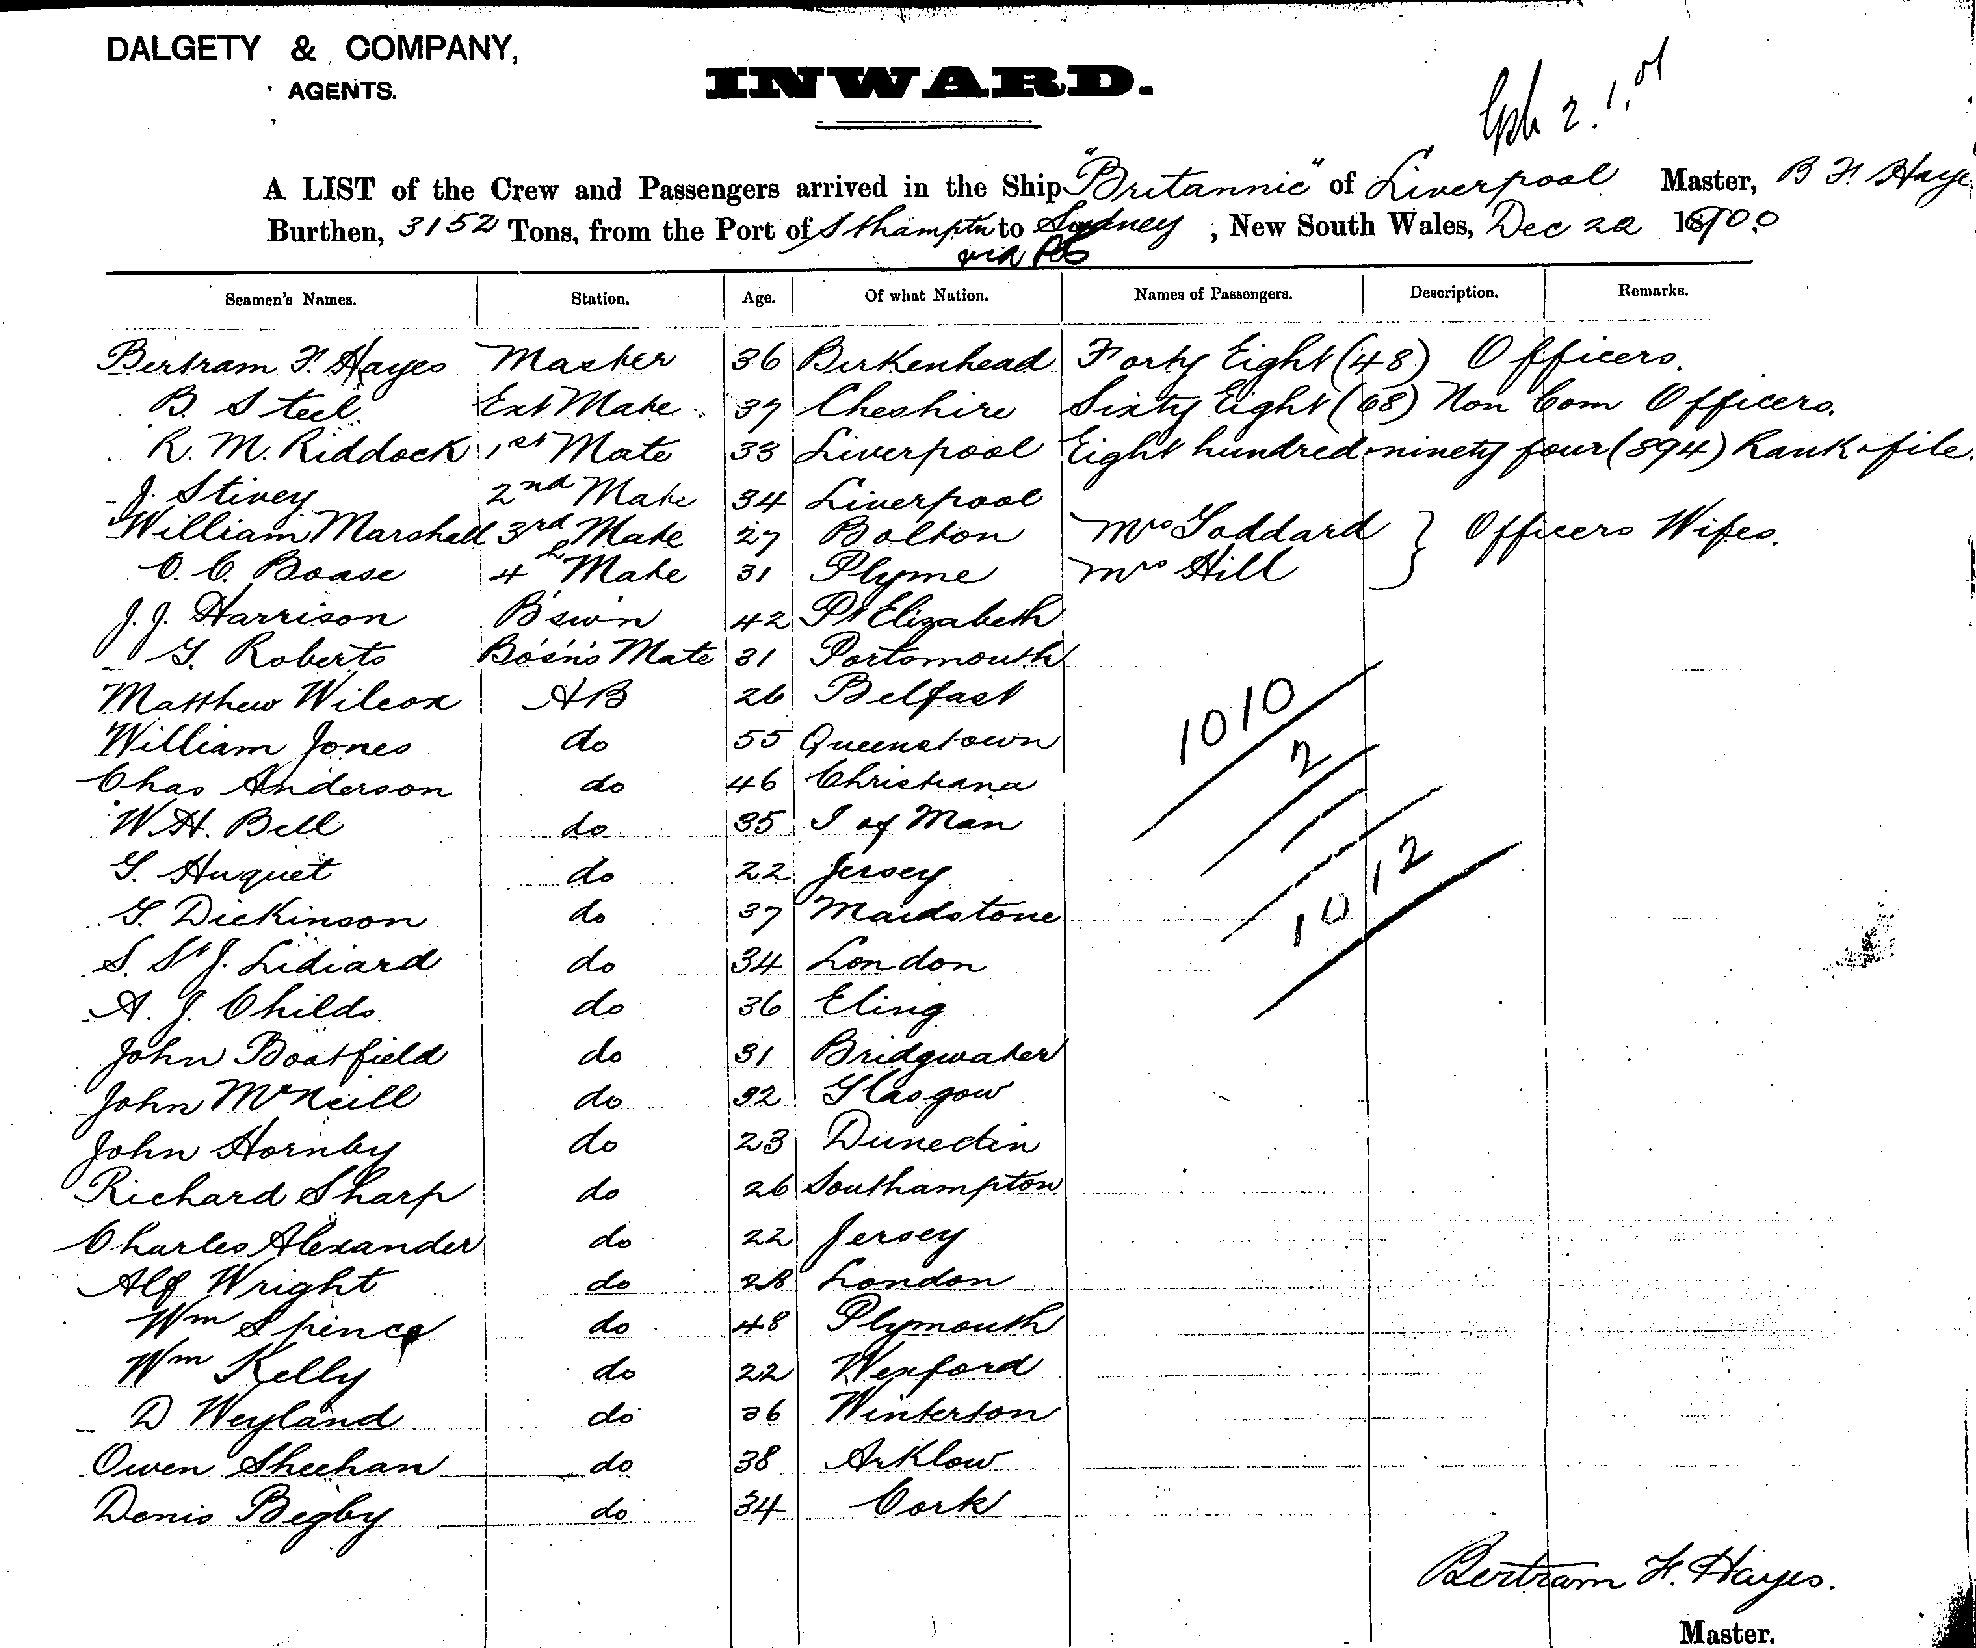 DALGETY & COMPANY,
AGENTS.
INWARD.
2.1.01
A LIST of the Crew and Passengers arrived in the Ship "Britannic" of Liverpool Master, B F. Hayes
Burthen, 3152 Tons, from the Port of Sthampton to Sydney, New South Wales, Dec 22 1900
via
Seamen's Names. Station. Age. Of what Nation. Names of Passengers. Description. Remarks.
Bertram F. Hayes Master 36 Birkenhead Forty Eight (48) Officers.
B. Steel Ext Mate 37 Cheshire Sixty Eight (68) Non Com Officers.
R. M. Riddock 1st Mate 33 Liverpool Eight hundred ninety four (894) Rank & file.
J. Stivey 2nd Mate 34 Liverpool
William Marshall 3rd Mate 27 Bolton Mrs Goddard } Officers Wifes.
O. C. Boase 4th Mate 31 Plyme Mrs Hill
J. J. Harrison B'sw'n 42 Pt Elizabeth
G. Roberts Bo's'n's Mate 31 Portsmouth
Matthew Wilcox AB 26 Belfast
William Jones do 55 Queenstown
1010
Chas Anderson do 46 Christiana
2
W. H. Bell do 35 I of Man
G. Huquet do 22 Jersey
1012
G. Dickinson do 37 Maidstone
S. St J. Lidiard do 34 London
A. J. Childs do 36 Eling
John Boatfield do 31 Bridgwater
John McNeill do 32 Glasgow
John Hornby do 23 Dunedin
Richard Sharp do 26 Southampton
Charles Alexander do 22 Jersey
Alf Wright do 28 London
Wm Spence do 48 Plymouth
Wm Kelly do 22 Wexford
D Weyland do 36 Winterton
Owen Sheehan do 38 Arklow
Denis Begby do 34 Cork
Bertram F. Hayes.
Master.